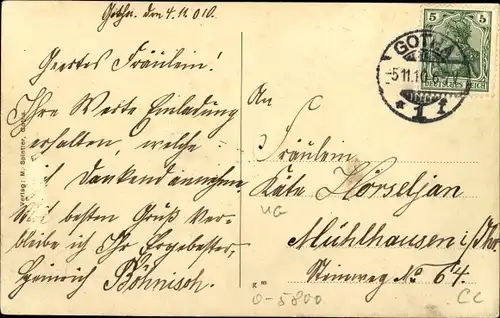 Gotha. den 4.11.010.
Geertes Fräulein!
Ihre Werte Einladung
erhalten, welche
ich Dankend annehme.
Mit besten Gruß Ver-
bleibe ich Ihr Ergebester,
Heinrich Böhnisch.
Verlag: M.
An
Fräulein
Käte Hörseljan
Mühlhausen i/Thr.
Steinweg No 64.
5 5
GOTHA
5.11.10
* 1 f
UG
0-5800
CC